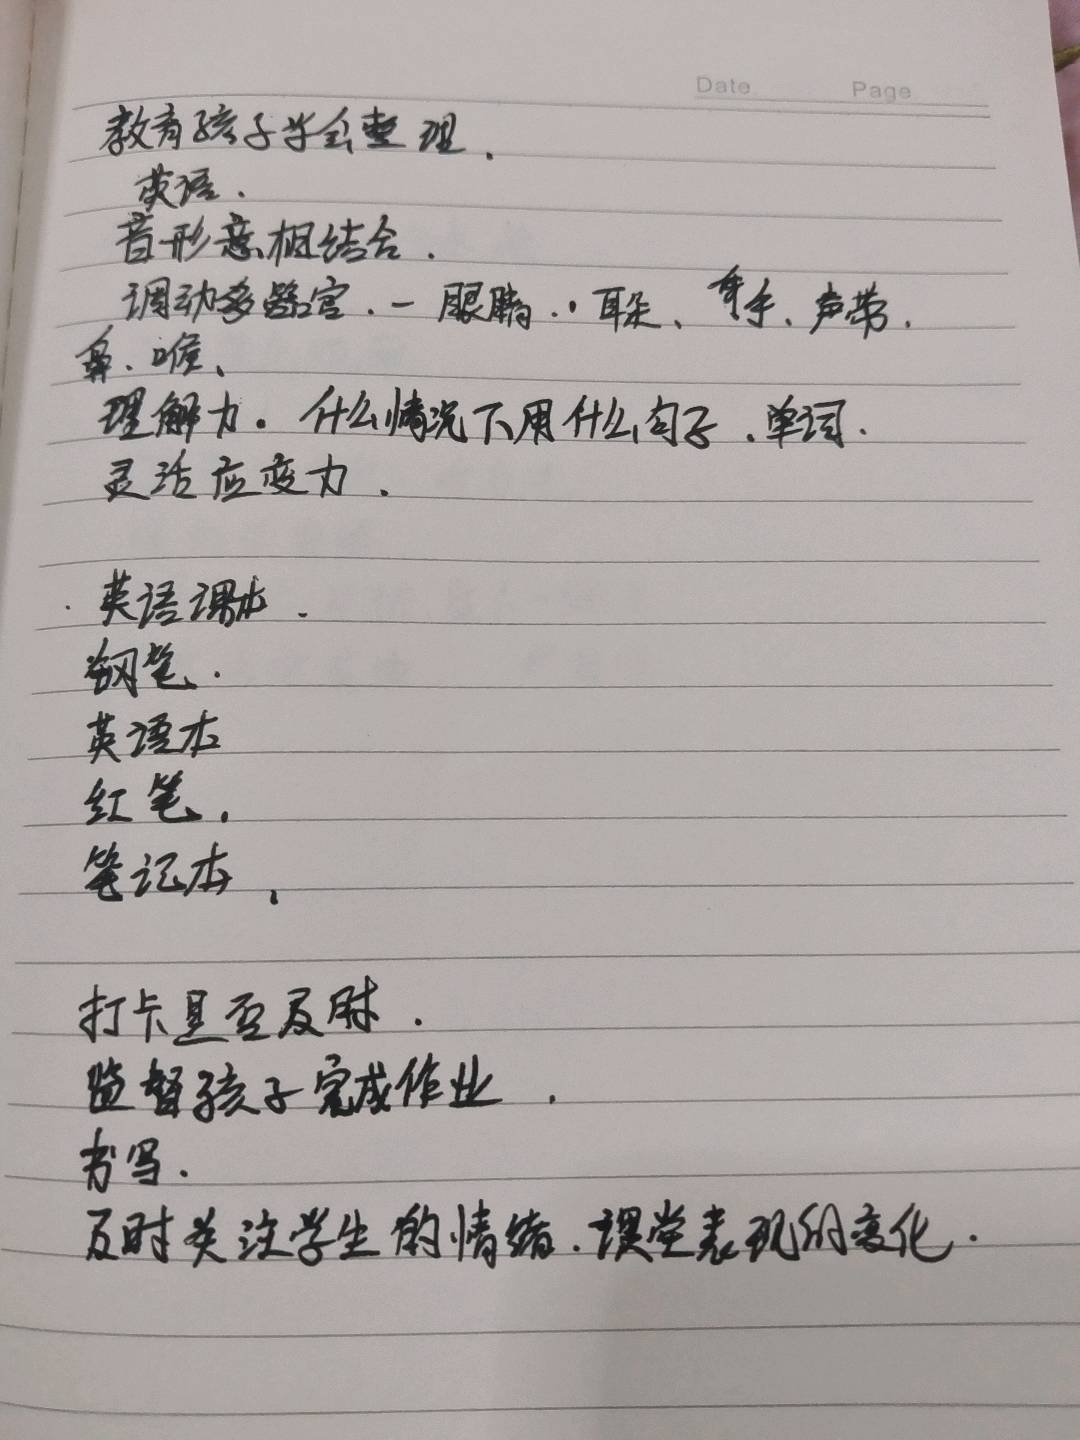 Date Page
教育孩子学会整理.
英语.
音形意相结合.
调动多器官.一眼睛.、耳朵、手、声带.
鼻.喉、
理解力。什么情况下用什么句子.单词.
灵活应变力.
·英语课本.
钢笔.
英语本
红笔.
笔记本,
打卡是否及时.
监督孩子完成作业.
书写.
及时关注学生的情绪.课堂表现的变化.